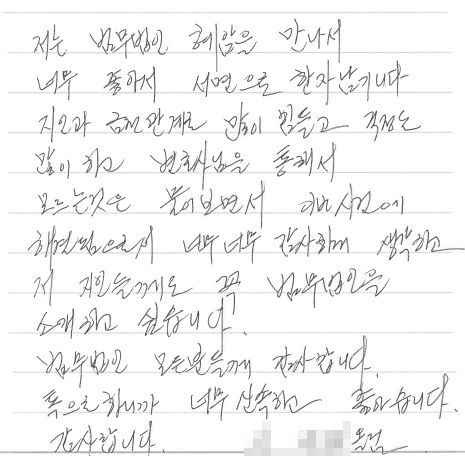 저는 법무법인 혜암을 만나서
너무 좋아서 서면으로 한자 남기니다
지인과 금전관계로 많이 힘들고 걱정도
많이 하고 변호사님을 통해서
모르는것은 물어보면서 이번사건에
해결됨으로서 너무 너무 감사하게 생각하고
저 지인들께도 꼭 법무법인을
소개하고 싶습니다.
법무법인 모든분들께 감사합니다.
톡으로하니까 너무 신속하고 좋아습니다.
감사합니다. 올림